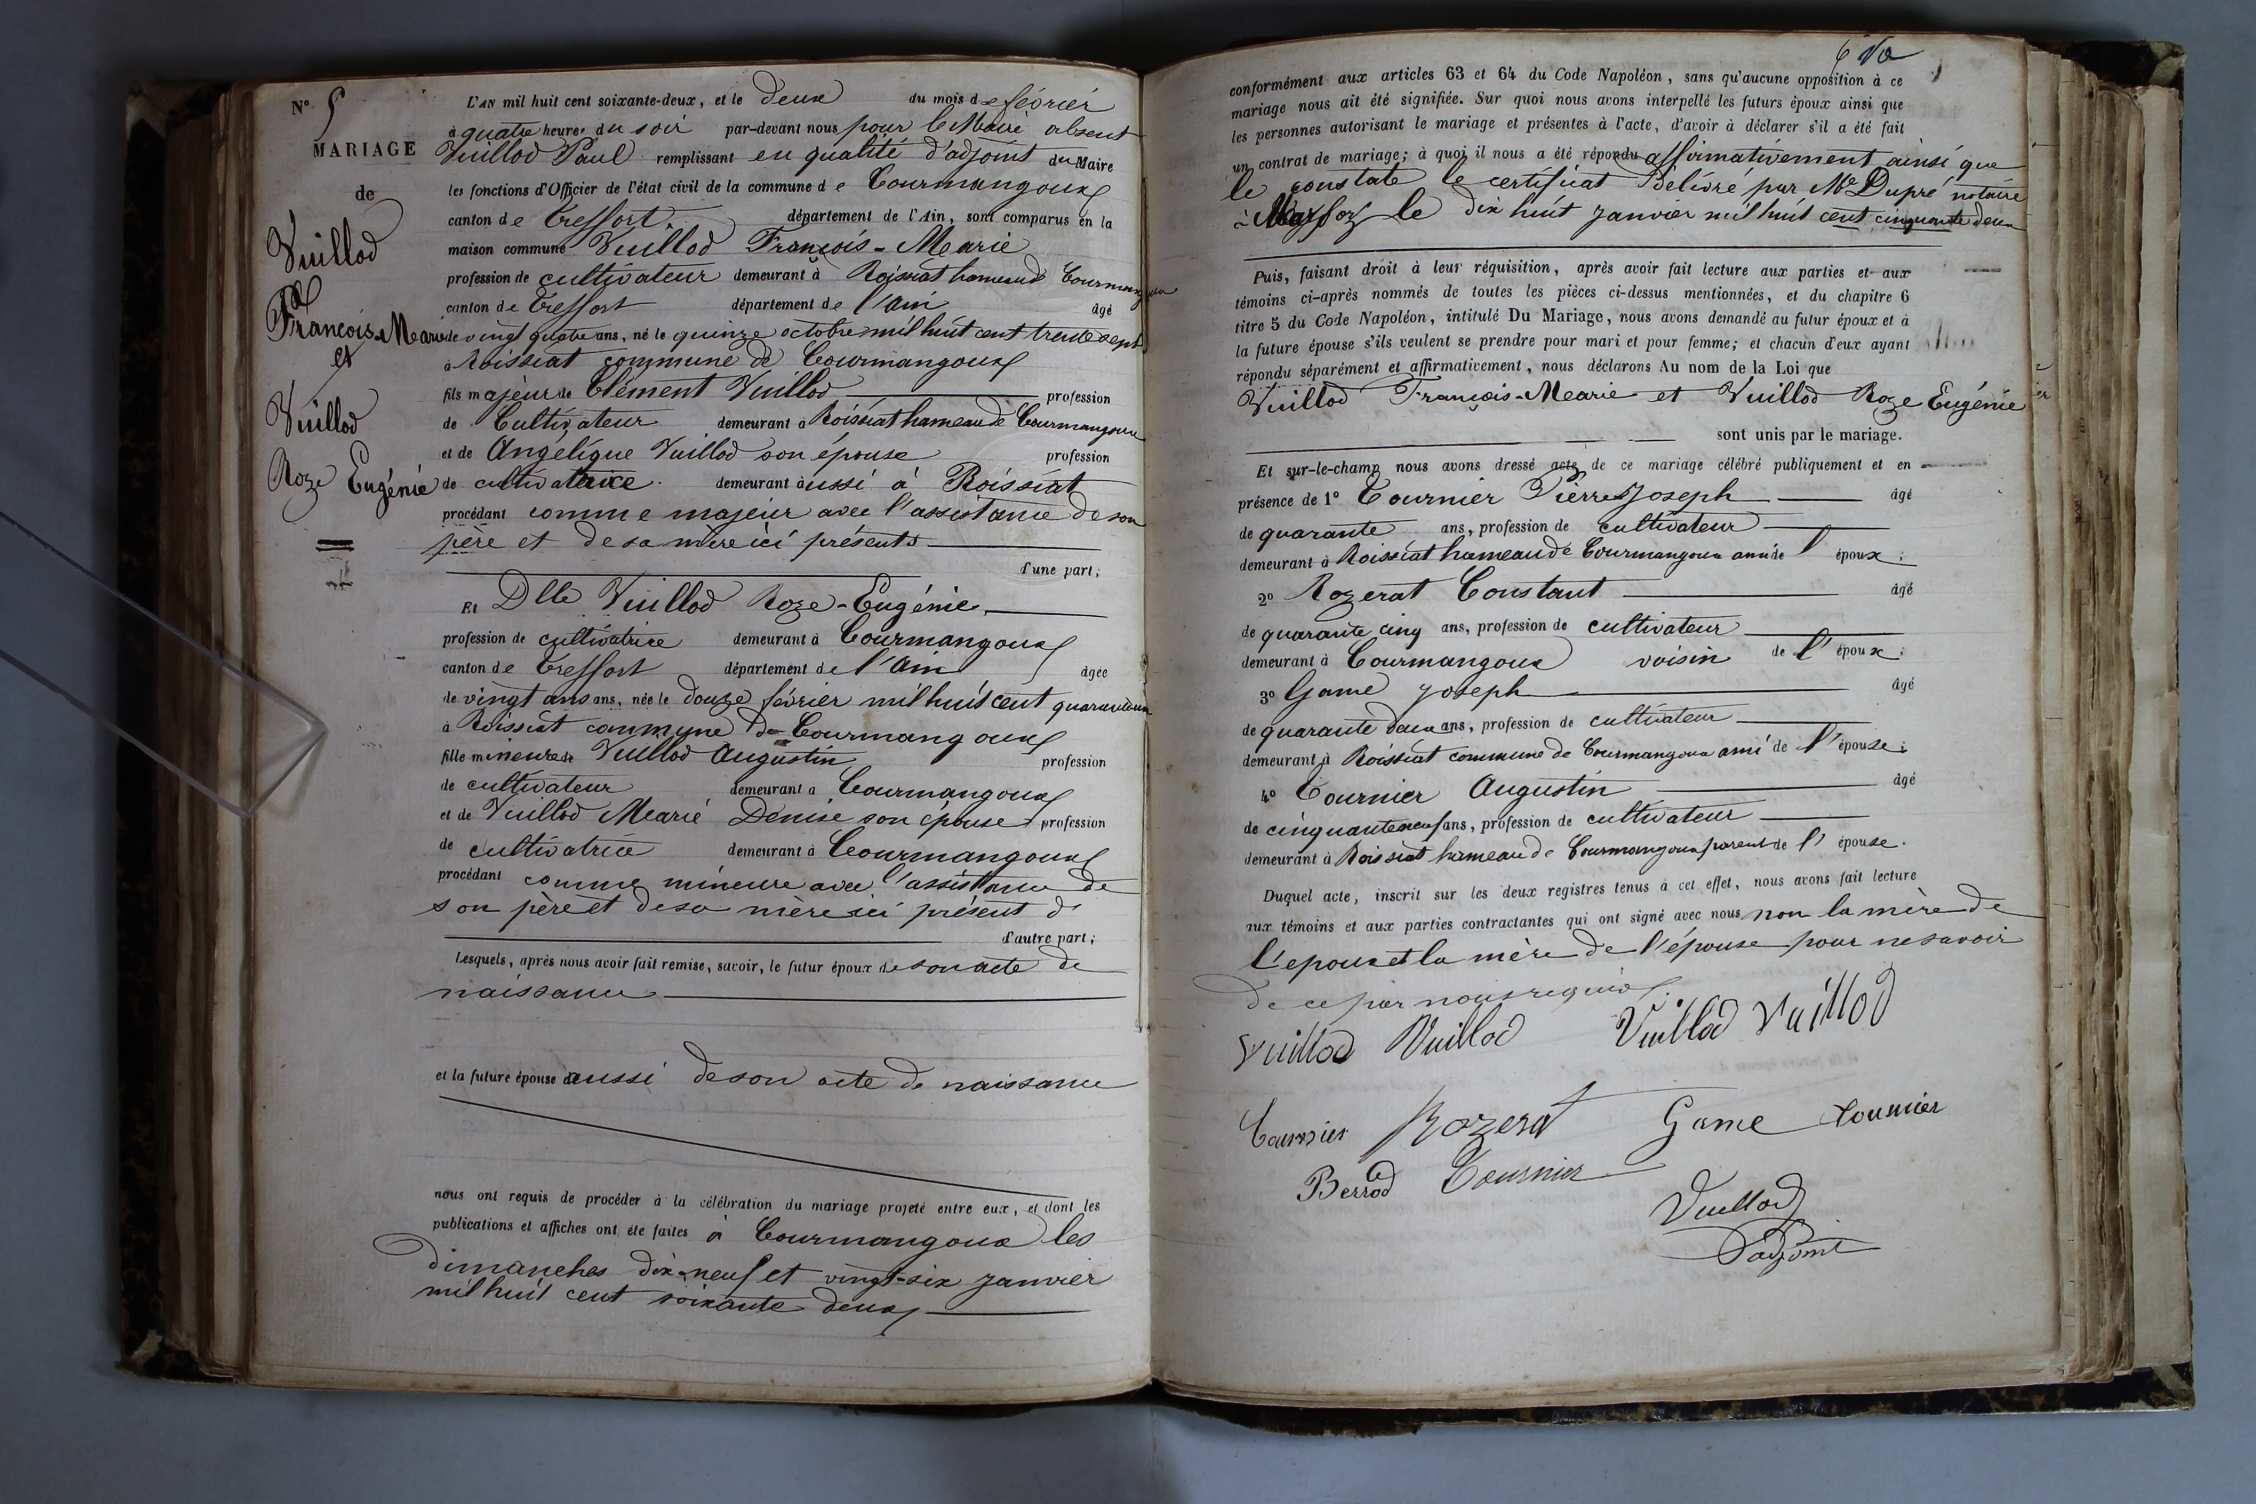 N° 5
MARIAGE
de
Vuillod
François-Marie
et
Vuillod
Roze Eugénie
L'AN mil huit cent soixante-deux, et le deux du mois de février
à quatre heures du soir par-devant nous pour le Maire absent
Vuillod Paul remplissant en qualité d'adjoint du Maire
les fonctions d'Officier de l'état civil de la commune de Courmangoux
canton de Treffort département de l'Ain, sont comparus en la
maison commune Vuillod François-Marie
profession de cultivateur demeurant à Roissiat hameau de Courmangoux
canton de Treffort département de l'Ain âgé
de vingt quatre ans, né le quinze octobre mil huit cent trente sept
à Roissiat commune de Courmangoux
fils majeur de Clément Vuillod profession
de Cultivateur demeurant à Roissiat hameau de Courmangoux
et de Angélique Vuillod son épouse profession
de cultivatrice demeurant aussi à Roissiat
procédant comme majeur avec l'assistance de son
père et de sa mère ici présents
d'une part;
Et Dlle Vuillod Roze-Eugénie
profession de cultivatrice demeurant à Courmangoux
canton de Treffort département de l'Ain âgée
de vingt ans ans, née le douze février mil huit cent quarante deux
à Roissiat commune de Courmangoux
fille mineure de Vuillod Augustin profession
de cultivateur demeurant à Courmangoux
et de Vuillod Marie Denise son épouse profession
de cultivatrice demeurant à Courmangoux
procédant comme mineure avec l'assistance de
son père et de sa mère ici présent
d'autre part;
Lesquels, après nous avoir fait remise, savoir, le futur époux de son acte de
naissance
et la future épouse aussi de son acte de naissance
nous ont requis de procéder à la célébration du mariage projeté entre eux, et dont les
publications et affiches ont été faites à Courmangoux les
dimanches dix-neuf et vingt-six janvier
mil huit cent soixante deux
conformément aux articles 63 et 64 du Code Napoléon, sans qu'aucune opposition à ce
mariage nous ait été signifiée. Sur quoi nous avons interpellé les futurs époux ainsi que
les personnes autorisant le mariage et présentes à l'acte, d'avoir à déclarer s'il a été fait
un contrat de mariage; à quoi il nous a été répondu affirmativement ainsi que
le constate le certificat Délivré par Me Dupré notaire
à le dix huit janvier mil huit cent cinquante deux
Puis, faisant droit à leur réquisition, après avoir fait lecture aux parties et aux
témoins ci-après nommés de toutes les pièces ci-dessus mentionnées, et du chapitre 6
titre 5 du Code Napoléon, intitulé Du Mariage, nous avons demandé au futur époux et à
la future épouse s'ils veulent se prendre pour mari et pour femme; et chacun d'eux ayant
répondu séparément et affirmativement, nous déclarons Au nom de la Loi que
Vuillod François-Marie et Vuillod Roze Eugénie
sont unis par le mariage.
Et sur-le-champ nous avons dressé acte de ce mariage célébré publiquement et en
présence de 1° Tournier Pierre Joseph âgé
de quarante ans, profession de cultivateur
demeurant à Roissiat hameau de Courmangoux ami de l'époux;
2° Rozerat Constant âgé
de quarante cinq ans, profession de cultivateur
demeurant à Courmangoux voisin de l'époux;
3° Game Joseph âgé
de quarante deux ans, profession de cultivateur
demeurant à Roissiat commune de Courmangoux ami de l'épouse;
4° Tournier Augustin âgé
de cinquante neuf ans, profession de cultivateur
demeurant à Roissiat hameau de Courmangoux parent de l'épouse.
Duquel acte, inscrit sur les deux registres tenus à cet effet, nous avons fait lecture
aux témoins et aux parties contractantes qui ont signé avec nous non la mère de
l'epoux et la mère de l'épouse pour ne savoir
de ce par nous requis
Vuillod Vuillod Vuillod Vuillod
Tournier Rozerat Game Tournier
Berrod Tournier
Vuillod
l'adjoint